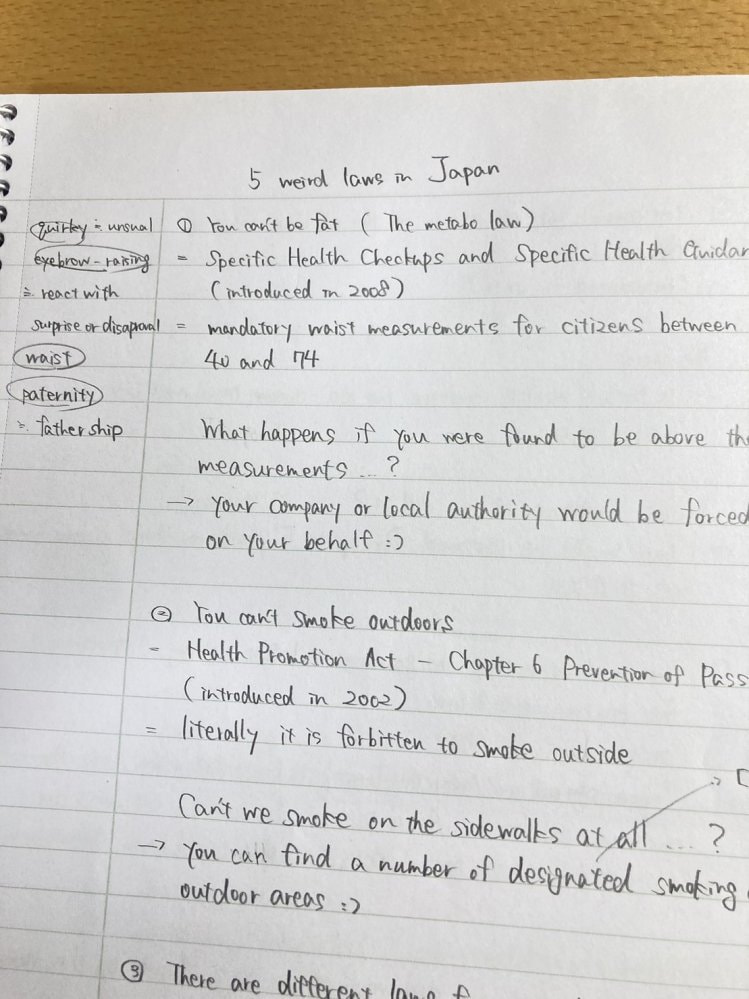 5 weird laws in Japan
quirkey ≒ unsual
eyebrow-raising
≒ react with
surprise or disaproval
waist
paternity
≒ father ship
① You can't be fat ( The metabo law)
= Specific Health Checkups and Specific Health Guidan
(introduced in 2008)
= mandatory waist measurements for citizens between
40 and 74
What happens if you were found to be above the
measurements ...?
→ Your company or local authority would be forced
on your behalf :)
② You can't smoke outdoors
= Health Promotion Act - Chapter 6 Prevention of Pass
(introduced in 2002)
= literally it is forbitten to smoke outside
Can't we smoke on the sidewalks at all ... ?
→ You can find a number of designated smoking
outdoor areas :)
③ There are different laws f